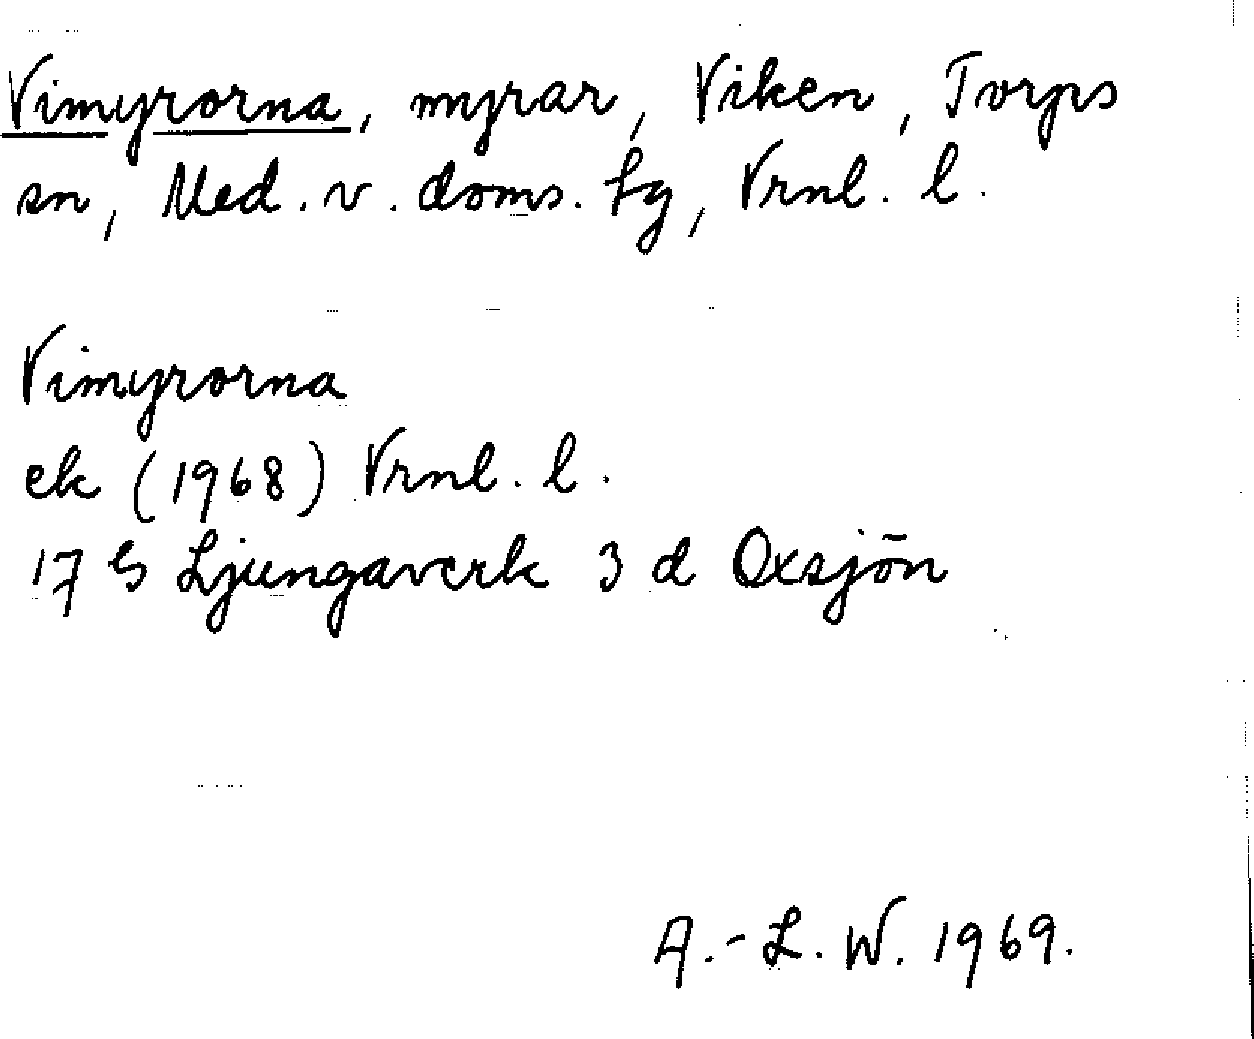 Vimyrorna, myrar, Viken, Torps
sn, Med. v. doms. tg, Vrnl. l.
Vimyrorna
ek (1968) Vrnl. l.
17 G Ljungaverk 3 d Oxsjön
A.-L. W. 1969.